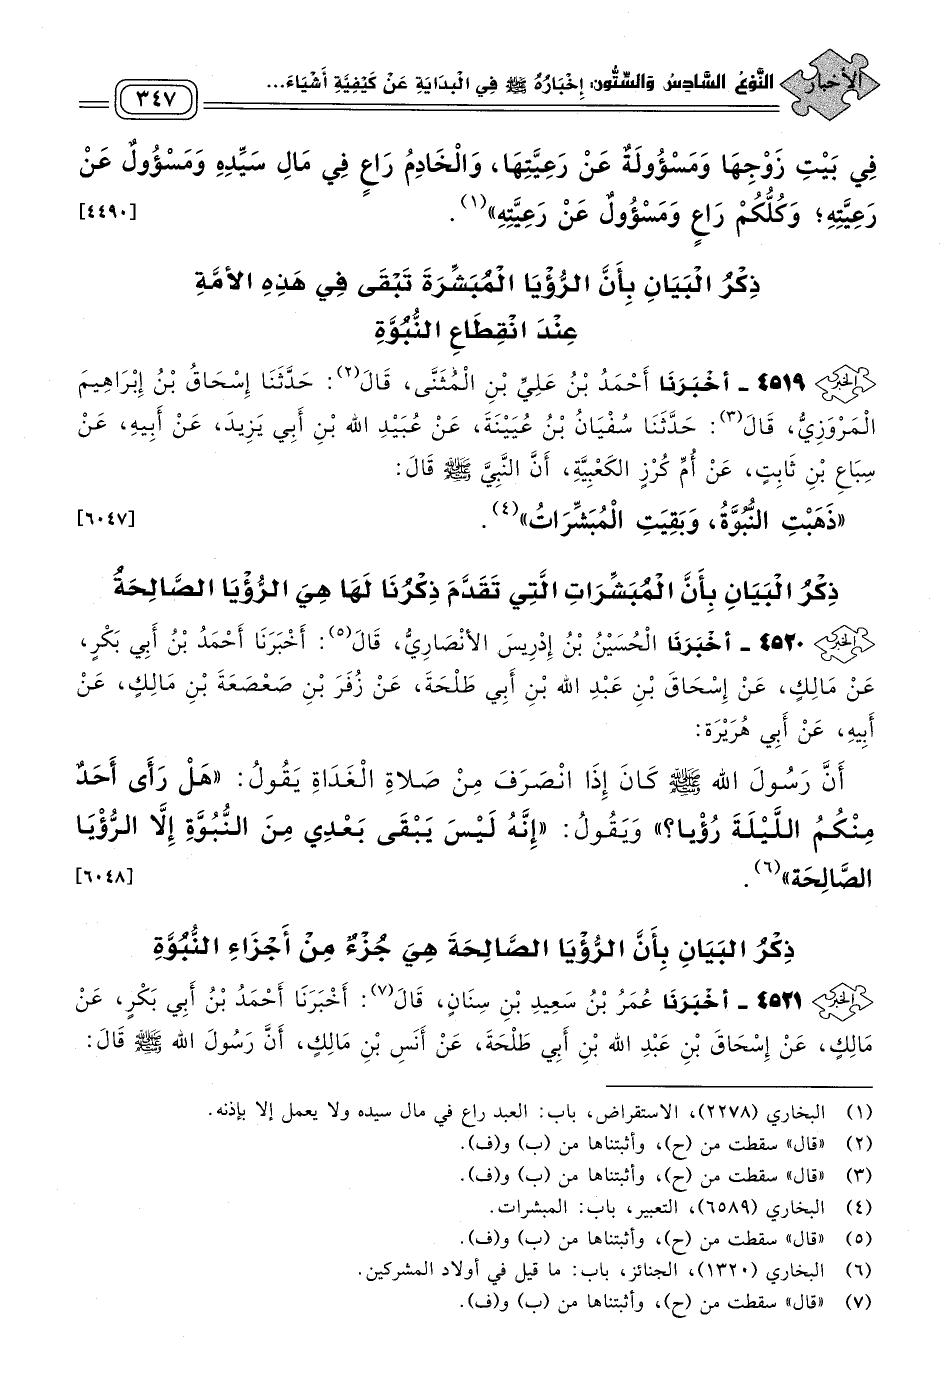 الأخبار
النَّوْعُ السَّادِسُ والسِّتُّونَ: إِخْبَارُهُ ﷺ فِي الْبِدَايَةِ عَنْ كَيْفِيَّةِ أَشْيَاءَ...
٣٤٧
فِي بَيْتِ زَوْجِهَا وَمَسْؤُولَةٌ عَنْ رَعِيَّتِهَا، وَالْخَادِمُ رَاعٍ فِي مَالِ سَيِّدِهِ وَمَسْؤُولٌ عَنْ
رَعِيَّتِهِ؛ وَكُلُّكُمْ رَاعٍ وَمَسْؤُولٌ عَنْ رَعِيَّتِهِ»(١). [٤٤٩٠]
ذِكْرُ الْبَيَانِ بِأَنَّ الرُّؤْيَا الْمُبَشِّرَةَ تَبْقَى فِي هَذِهِ الأُمَّةِ
عِنْدَ انْقِطَاعِ النُّبُوَّةِ
الخبر ٤٥١٩ ـ أَخْبَرَنَا أَحْمَدُ بْنُ عَلِيِّ بْنِ الْمُثَنَّى، قَالَ(٢): حَدَّثَنَا إِسْحَاقُ بْنُ إِبْرَاهِيمَ
الْمَرْوَزِيُّ، قَالَ(٣): حَدَّثَنَا سُفْيَانُ بْنُ عُيَيْنَةَ، عَنْ عُبَيْدِ الله بْنِ أَبِي يَزِيدَ، عَنْ أَبِيهِ، عَنْ
سِبَاعِ بْنِ ثَابِتٍ، عَنْ أُمِّ كُرْزٍ الكَعْبِيَّةِ، أَنَّ النَّبِيَّ ﷺ قَالَ:
«ذَهَبَتِ النُّبُوَّةُ، وَبَقِيَتِ الْمُبَشِّرَاتُ»(٤). [٦٠٤٧]
ذِكْرُ الْبَيَانِ بِأَنَّ الْمُبَشِّرَاتِ الَّتِي تَقَدَّمَ ذِكْرُنَا لَهَا هِيَ الرُّؤْيَا الصَّالِحَةُ
الخبر ٤٥٢٠ ـ أَخْبَرَنَا الْحُسَيْنُ بْنُ إِدْرِيسَ الأَنْصَارِيُّ، قَالَ(٥): أَخْبَرَنَا أَحْمَدُ بْنُ أَبِي بَكْرٍ،
عَنْ مَالِكٍ، عَنْ إِسْحَاقَ بْنِ عَبْدِ الله بْنِ أَبِي طَلْحَةَ، عَنْ زُفَرَ بْنِ صَعْصَعَةَ بْنِ مَالِكٍ، عَنْ
أَبِيهِ، عَنْ أَبِي هُرَيْرَةَ:
أَنَّ رَسُولَ الله ﷺ كَانَ إِذَا انْصَرَفَ مِنْ صَلاةِ الْغَدَاةِ يَقُولُ: «هَلْ رَأَى أَحَدٌ
مِنْكُمُ اللَّيْلَةَ رُؤْيَا؟» وَيَقُولُ: «إِنَّهُ لَيْسَ يَبْقَى بَعْدِي مِنَ النُّبُوَّةِ إِلَّا الرُّؤْيَا
الصَّالِحَة»(٦). [٦٠٤٨]
ذِكْرُ البَيَانِ بِأَنَّ الرُّؤْيَا الصَّالِحَةَ هِيَ جُزْءٌ مِنْ أَجْزَاءِ النُّبُوَّةِ
الخبر ٤٥٢١ ـ أَخْبَرَنَا عُمَرُ بْنُ سَعِيدِ بْنِ سِنَانٍ، قَالَ(٧): أَخْبَرَنَا أَحْمَدُ بْنُ أَبِي بَكْرٍ، عَنْ
مَالِكٍ، عَنْ إِسْحَاقَ بْنِ عَبْدِ الله بْنِ أَبِي طَلْحَةَ، عَنْ أَنَسِ بْنِ مَالِكٍ، أَنَّ رَسُولَ الله ﷺ قَالَ:
(١) البخاري (٢٢٧٨)، الاستقراض، باب: العبد راع في مال سيده ولا يعمل إلا بإذنه.
(٢) «قال» سقطت من (ح)، وأثبتناها من (ب) و(ف).
(٣) «قال» سقطت من (ح)، وأثبتناها من (ب) و(ف).
(٤) البخاري (٦٥٨٩)، التعبير، باب: المبشرات.
(٥) «قال» سقطت من (ح)، وأثبتناها من (ب) و(ف).
(٦) البخاري (١٣٢٠)، الجنائز، باب: ما قيل في أولاد المشركين.
(٧) «قال» سقطت من (ح)، وأثبتناها من (ب) و(ف).